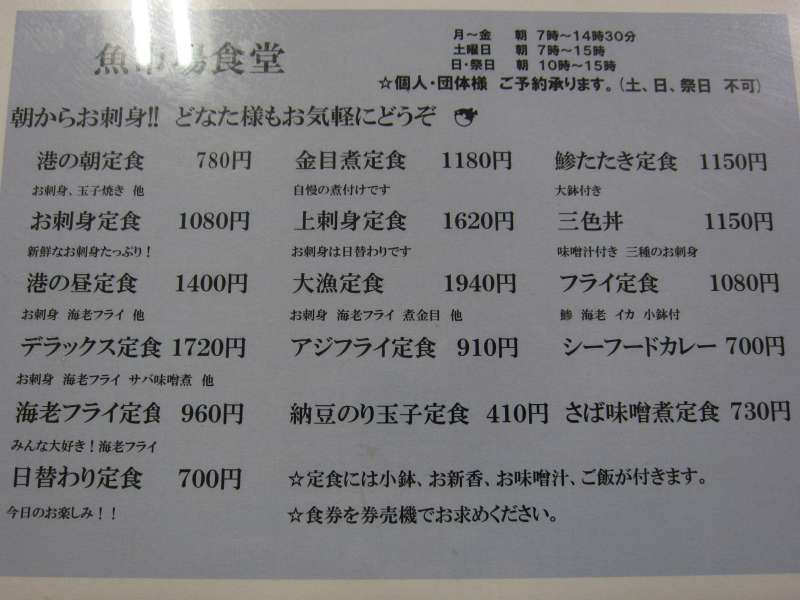 魚市場食堂
月～金 朝 7時～14時30分
土曜日 朝 7時～15時
日・祭日 朝 10時～15時
☆個人・団体様 ご予約承ります。（土、日、祭日 不可）
朝からお刺身!! どなた様もお気軽にどうぞ
港の朝定食 780円 金目煮定食 1180円 鯵たたき定食 1150円
お刺身、玉子焼き 他 自慢の煮付けです 大鉢付き
お刺身定食 1080円 上刺身定食 1620円 三色丼 1150円
新鮮なお刺身たっぷり！ お刺身は日替わりです 味噌汁付き 三種のお刺身
港の昼定食 1400円 大漁定食 1940円 フライ定食 1080円
お刺身 海老フライ 他 お刺身 海老フライ 煮金目 他 鯵 海老 イカ 小鉢付
デラックス定食 1720円 アジフライ定食 910円 シーフードカレー 700円
お刺身 海老フライ サバ味噌煮 他
海老フライ定食 960円 納豆のり玉子定食 410円 さば味噌煮定食 730円
みんな大好き！海老フライ
日替わり定食 700円 ☆定食には小鉢、お新香、お味噌汁、ご飯が付きます。
今日のお楽しみ！！ ☆食券を券売機でお求めください。